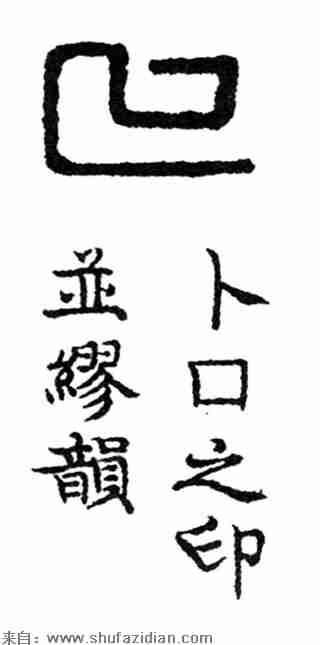 卜口之印
並繆韻
来自：www.shufazidian.com